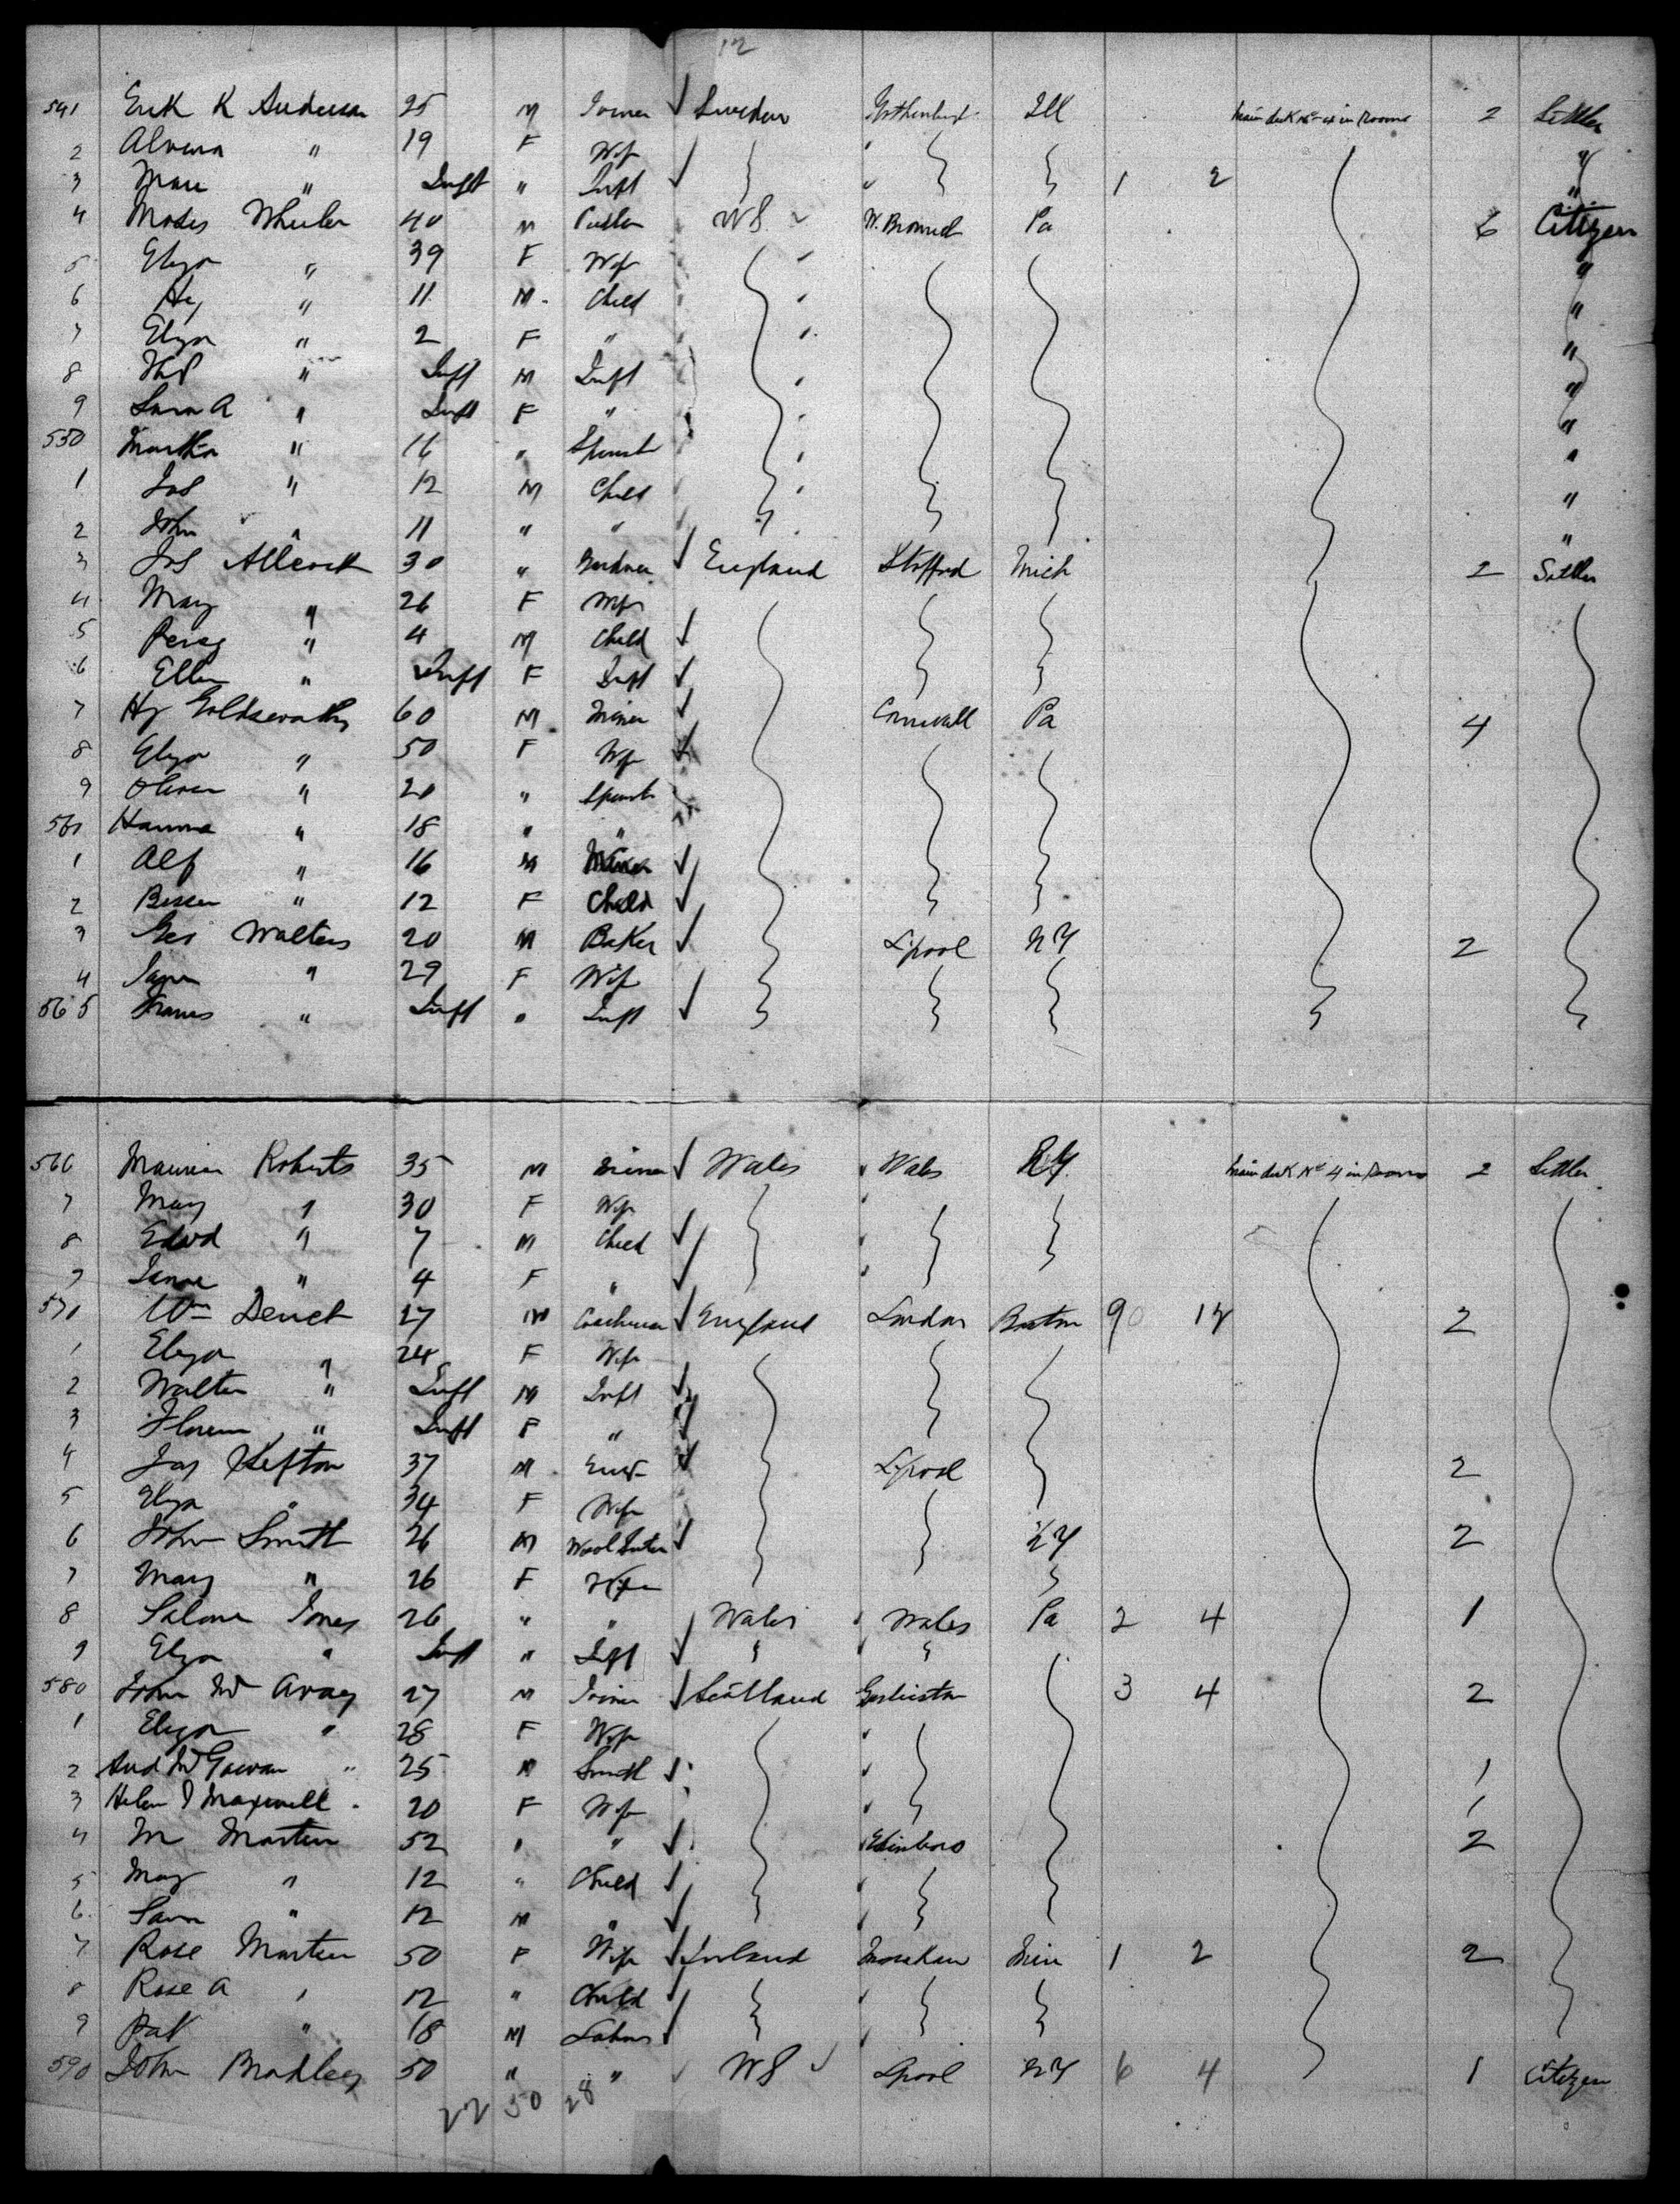 12
541 Erik K Anderson 25 M Joiner Sweden Gothenburg Ill Main deck No 4 in Rooms 2 Settler
2 Alvena " 19 F Wife "
3 " Inft " Inft 1 2 "
4 Moses Wheeler 40 M US W. Bromich Pa 6 Citizen
5 Eliza " 39 F Wife "
6 Hy " 11 M Child "
7 Eliza " 2 F " "
8 Thos " Inft M Inft "
9 Sara A " Inft F " "
550 Martha " 16 " Spinst "
1 Jos " 12 M Child "
2 John " 11 " " "
3 Jos Allcock 30 " England Stafford Mich 2 Settler
4 Mary " 26 F Wife
5 Percy " 4 M Child
6 Ellen " Inft F Inft
7 Hy Goldsworthy 60 M Miner Cornwall Pa 4
8 Eliza " 50 F Wife
9 " 20 " Spinst
560 Hanna " 18 " "
1 Alf " 16 M Miner
2 " 12 F Child
3 Geo Walters 20 M Baker L'pool NY 2
4 " 29 F Wife
565 " Inft " Inft
566 Roberts 35 M Miner Wales Wales NY Main deck No 4 in Rooms 2 Settler
7 Mary " 30 F Wife
8 Edwd " 7 M Child
9 " 4 F "
570 Wm 27 M Coachman England London Boston 90 12 2
1 Eliza " 24 F Wife
2 Walter " Inft M Inft
3 " Inft F "
4 Jas 37 M L'pool 2
5 Eliza " 34 F Wife
6 John Smith 26 M Wool NY 2
7 Mary " 26 F Wife
8 Jones 26 " " Wales Wales Pa 2 4 1
9 Eliza " Inft " Inft " "
580 John 27 M Joiner Scotland 3 4 2
1 Eliza " 28 F Wife
2 And McGowan " 25 M Smith 1
3 Helen Maxwell 20 F Wife 1
4 M Martin 52 " " Edinboro 2
5 May " 12 " Child
6 " 12 M "
7 Rose Martin 50 F Wife Ireland 1 2 2
8 Rose A " 12 " Child
9 Pat " 18 M
590 John Bradley 50 " " US L'pool NY 6 4 1 Citizen
22 50 28